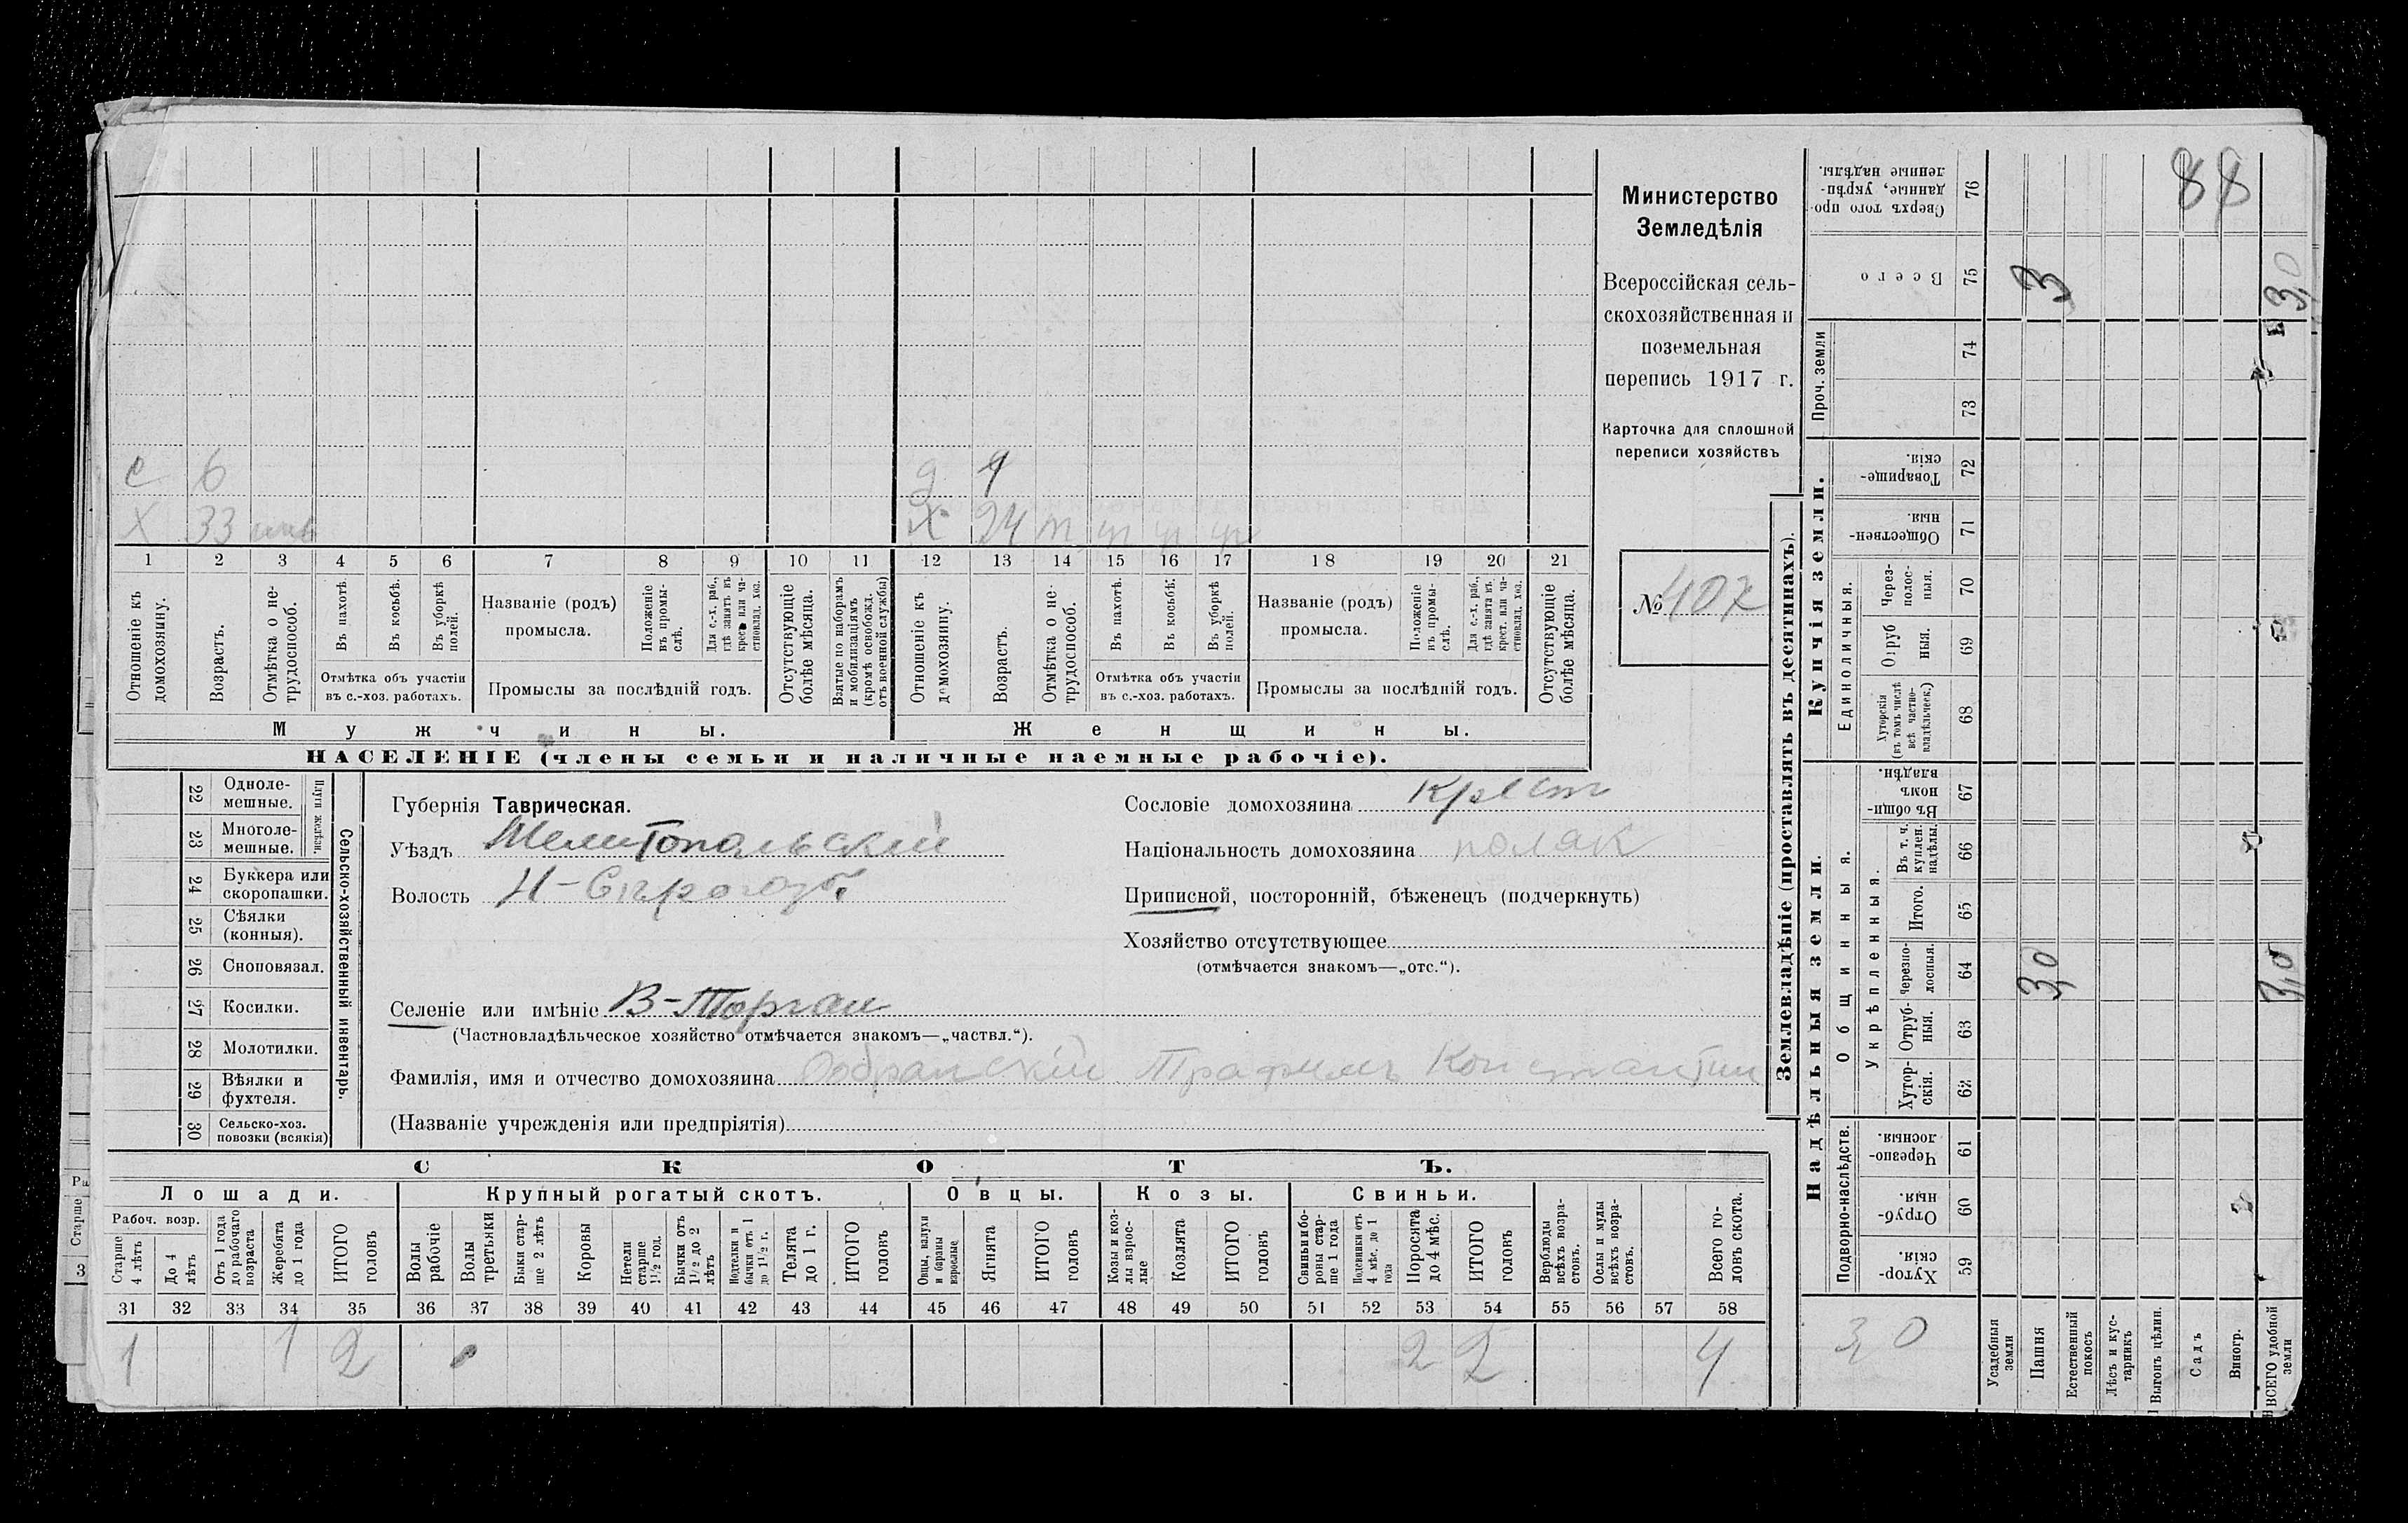 Министерство
Земледѣлія
Всероссійская сель-
скохозяйственная и
поземельная
перепись 1917 г.
Карточка для сплошной
переписи хозяйствъ
№ 407
88
с 6 д 1
Х 33 Х 24
1 2 3 4 5 6 7 8 9 10 11 12 13 14 15 16 17 18 19 20 21
Отношеніе къ домохозяину.
Возрастъ.
Отмѣтка о не-трудоспособ.
Въ пахотѣ.
Въ косьбѣ.
Въ уборкѣ полей.
Отмѣтка объ участіи
въ с.-хоз. работахъ.
Названіе (родъ)
промысла.
Положеніе въ промы-слѣ.
Для с.-х. раб., гдѣ занятъ въ крест. или ча-стновлад. хоз.
Промыслы за послѣдній годъ.
Отсутствующіе болѣе мѣсяца.
Взятые по наборамъ и мобилизаціямъ (кромѣ освобожд. отъ военной службы)
Отношеніе къ домохозяину.
Возрастъ.
Отмѣтка о не-трудоспособ.
Въ пахотѣ.
Въ косьбѣ.
Въ уборкѣ полей.
Отмѣтка объ участіи
въ с.-хоз. работахъ.
Названіе (родъ)
промысла.
Положеніе въ промы-слѣ.
Для с.-х. раб., гдѣ занята въ крест. или ча-стновлад. хоз.
Промыслы за послѣдній годъ.
Отсутствующіе болѣе мѣсяца.
Мужчины. Женщины.
НАСЕЛЕНІЕ (члены семьи и наличные наемные рабочіе).
22 Одноле-мешные.
23 Многоле-мешные.
Плуги желѣзн.
24 Буккера или скоропашки.
25 Сѣялки (конныя).
26 Сноповязал.
27 Косилки.
28 Молотилки.
29 Вѣялки и фухтеля.
30 Сельско-хоз. повозки (всякія)
Сельско-хозяйственный инвентарь.
Губернія Таврическая.
Уѣздъ Мелитопольскій
Волость Н-Сѣрогоз.
Селеніе или имѣніе В-Торгаи
(Частновладѣльческое хозяйство отмѣчается знакомъ—„частвл.“).
Фамилія, имя и отчество домохозяина Добранскій Трафимъ Константин
(Названіе учрежденія или предпріятія)
Сословіе домохозяина крест
Національность домохозяина поляк
Приписной, посторонній, бѣженецъ (подчеркнуть)
Хозяйство отсутствующее
(отмѣчается знакомъ—„отс.“).
СКОТЪ.
Лошади. Крупный рогатый скотъ. Овцы. Козы. Свиньи.
Рабоч. возр.
Старше 4 лѣтъ
До 4 лѣтъ
Отъ 1 года до рабочаго возраста
Жеребята до 1 года
ИТОГО головъ
Волы рабочіе
Волы третьяки
Быки стар-ше 2 лѣтъ
Коровы
Нетели старше 1½ год.
Бычки отъ 1½ до 2 лѣтъ
Подтелки и бычки отъ 1 до 1½ г.
Телята до 1 г.
ИТОГО головъ
Овцы, валухи и бараны взрослые
Ягнята
ИТОГО головъ
Козы и коз-лы взрос-лые
Козлята
ИТОГО головъ
Свиньи и бо-ровы стар-ше 1 года
Подсвинки отъ 4 мѣс. до 1 года
Поросята до 4 мѣс.
ИТОГО головъ
Верблюды всѣхъ возра-стовъ.
Ослы и мулы всѣхъ возра-стовъ.
Всего го-ловъ скота.
31 32 33 34 35 36 37 38 39 40 41 42 43 44 45 46 47 48 49 50 51 52 53 54 55 56 57 58
1 1 2 2 2 4
Землевладѣніе (проставлять въ десятинахъ).
Купчія земли.
Проч. земли
Сверхъ того про-данные, укрѣп-ленные надѣлы. 76
Всего 75 3 3,0
74
73
Товарище-скія. 72
Обществен-ныя. 71
Единоличныя.
Через-полос-ныя. 70
Отруб-ныя. 69
Хуторскія (въ томъ числѣ всѣ частно-владѣльческ.) 68
Надѣльныя земли.
Общинныя.
Укрѣпленныя.
Въ общи-номъ владѣн. 67
Въ т. ч. куплен. надѣлы. 66
Итого. 65
Черезпо-лосныя. 64 3,0 3,0
Отруб-ныя. 63
Хутор-скія. 62
Подворно-наслѣдств.
Черезпо-лосныя. 61
Отруб-ныя. 60
Хутор-скія. 59
3,0
Усадебныя земли
Пашня
Естественный покосъ
Лѣсъ и кус-тарникъ
Выгонъ цѣлин.
Садъ
Виногр.
ВСЕГО удобной земли
Старше
3